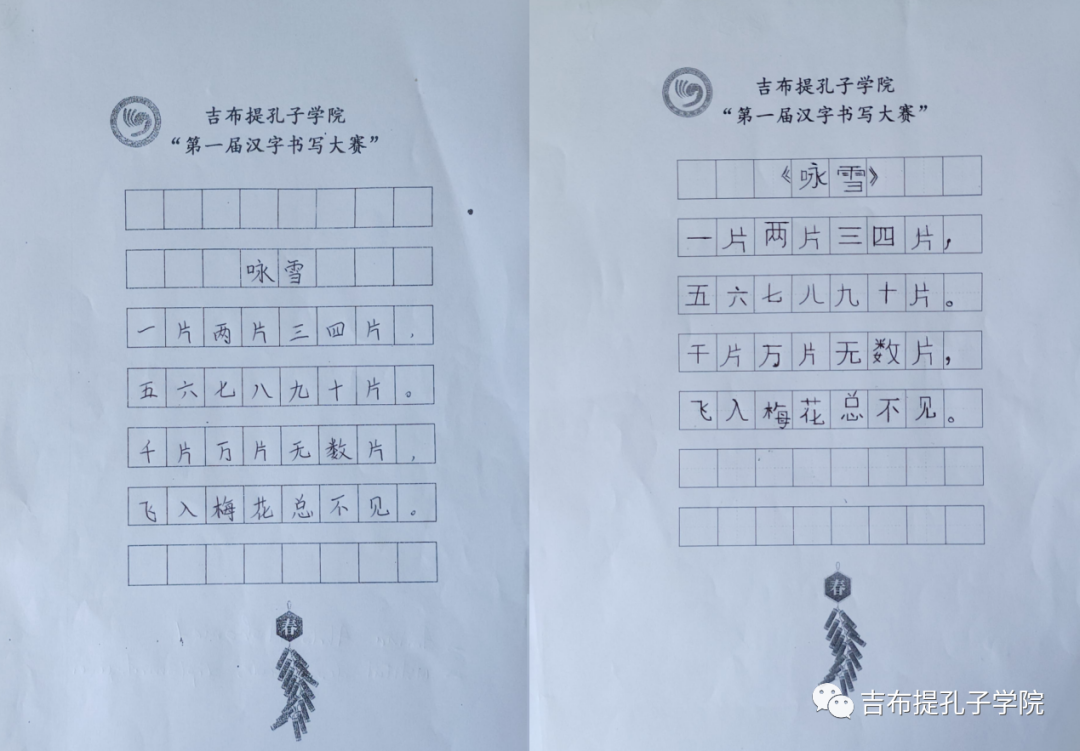 吉布提孔子学院
“第一届汉字书写大赛”
咏雪
一片两片三四片，
五六七八九十片。
千片万片无数片，
飞入梅花总不见。
春
吉布提孔子学院
“第一届汉字书写大赛”
《咏雪》
一片两片三四片，
五六七八九十片。
千片万片无数片，
飞入梅花总不见。
春
吉布提孔子学院